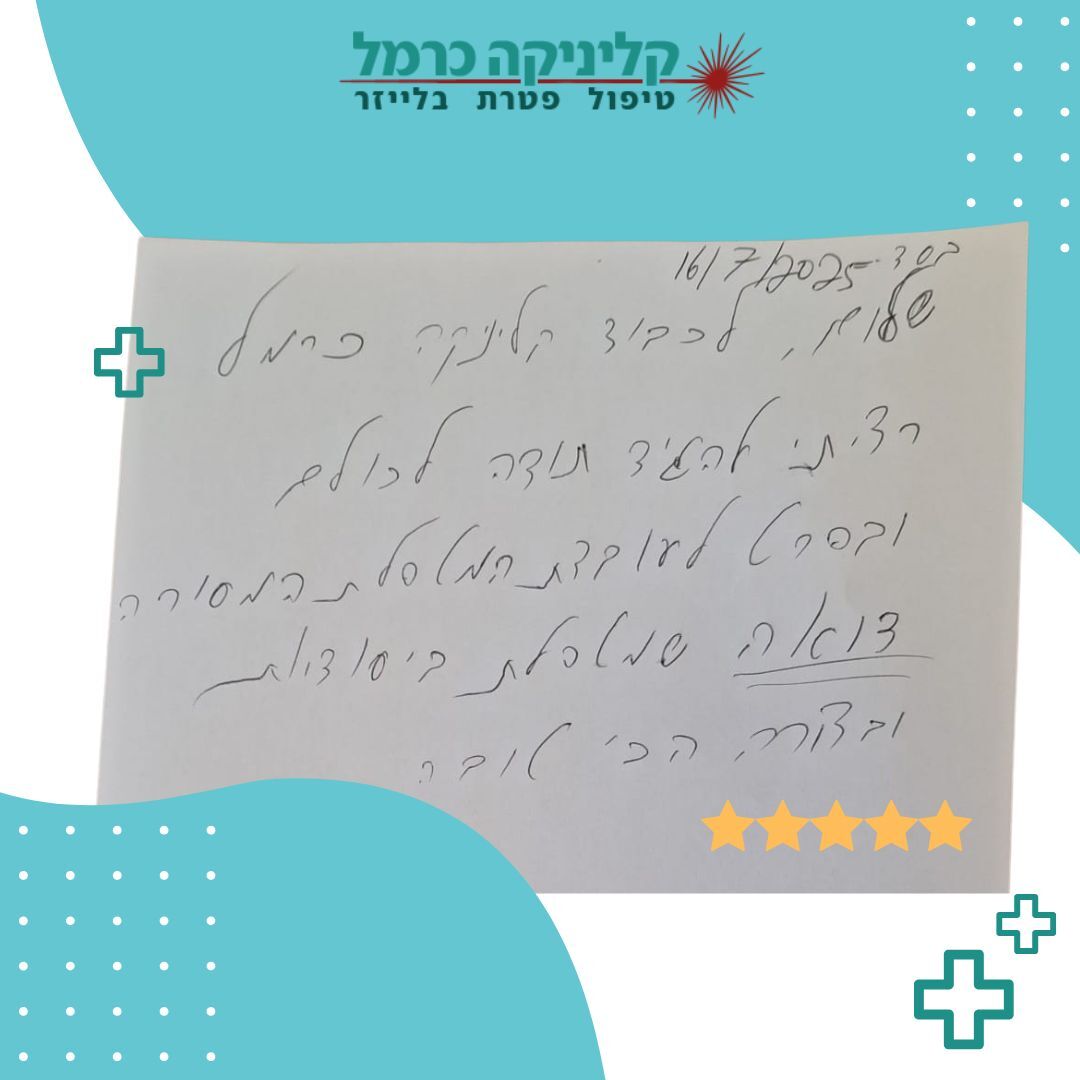 קליניקה כרמל
טיפול פטרת בלייזר
בסד 16/7/2025
שלום, לכבוד קליניקה כרמל
רציתי להגיד תודה לכולם
ובפרט לעובדת המטפלת המסורה
דואה שמטפלת ביסודיות
ובצורה הכי טובה